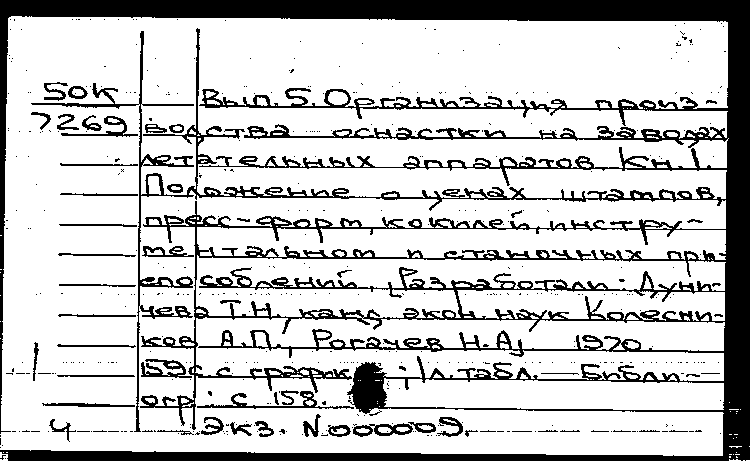 50К Вып. 5. Организация произ-
7269 водства оснастки на заводах
летательных аппаратов. Кн. 1.
Положение о ценах штампов,
пресс-форм, кокилей, инстру-
ментальном и станочных при-
способлений. [Разработали: Дуни-
чева Т.Н., канд. экон. наук Колесни-
ков А.П., Рогачев Н.А.] 1970.
159с. с график.; 1 л. табл. Библи-
огр: с 158.
Ч Экз. N000009.